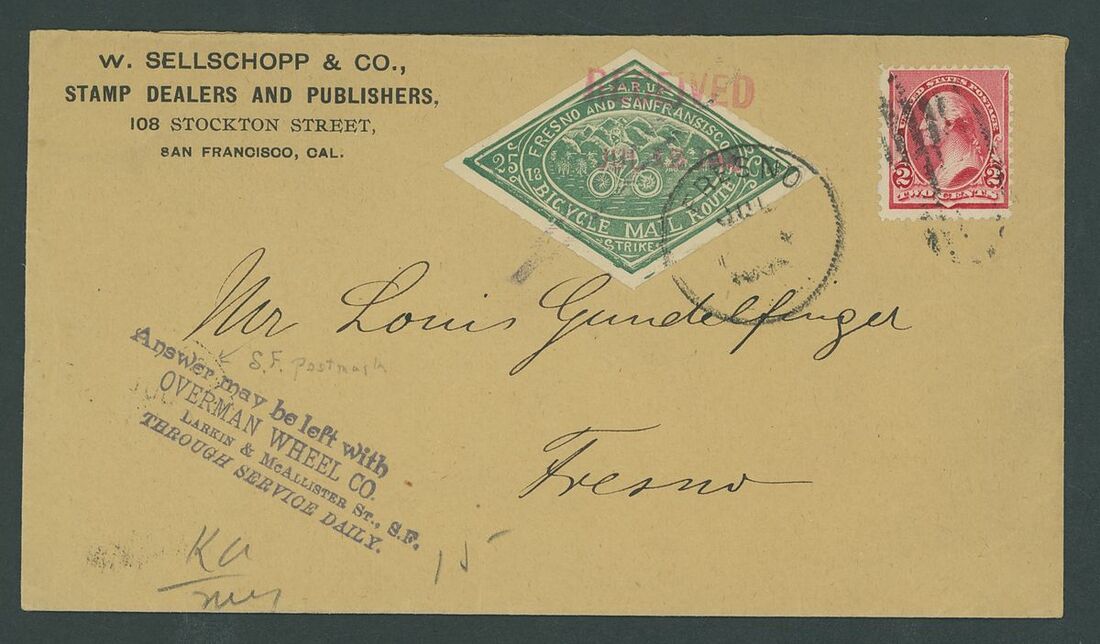 W. SELLSCHOPP & CO.,
STAMP DEALERS AND PUBLISHERS,
108 STOCKTON STREET,
SAN FRANCISCO, CAL.
RECEIVED
A.R.U.
FRESNO AND SANFRANSISCO
25
18
BICYCLE MAIL ROUTE
STRIKE
FRESNO
JUL
UNITED STATES POSTAGE
2 2
TWO CENTS
Mr Louis Gundelfinger
Fresno
S.F. postmark
Answer may be left with
OVERMAN WHEEL CO.
LARKIN & MCALLISTER ST., S.F.
THROUGH SERVICE DAILY.
15